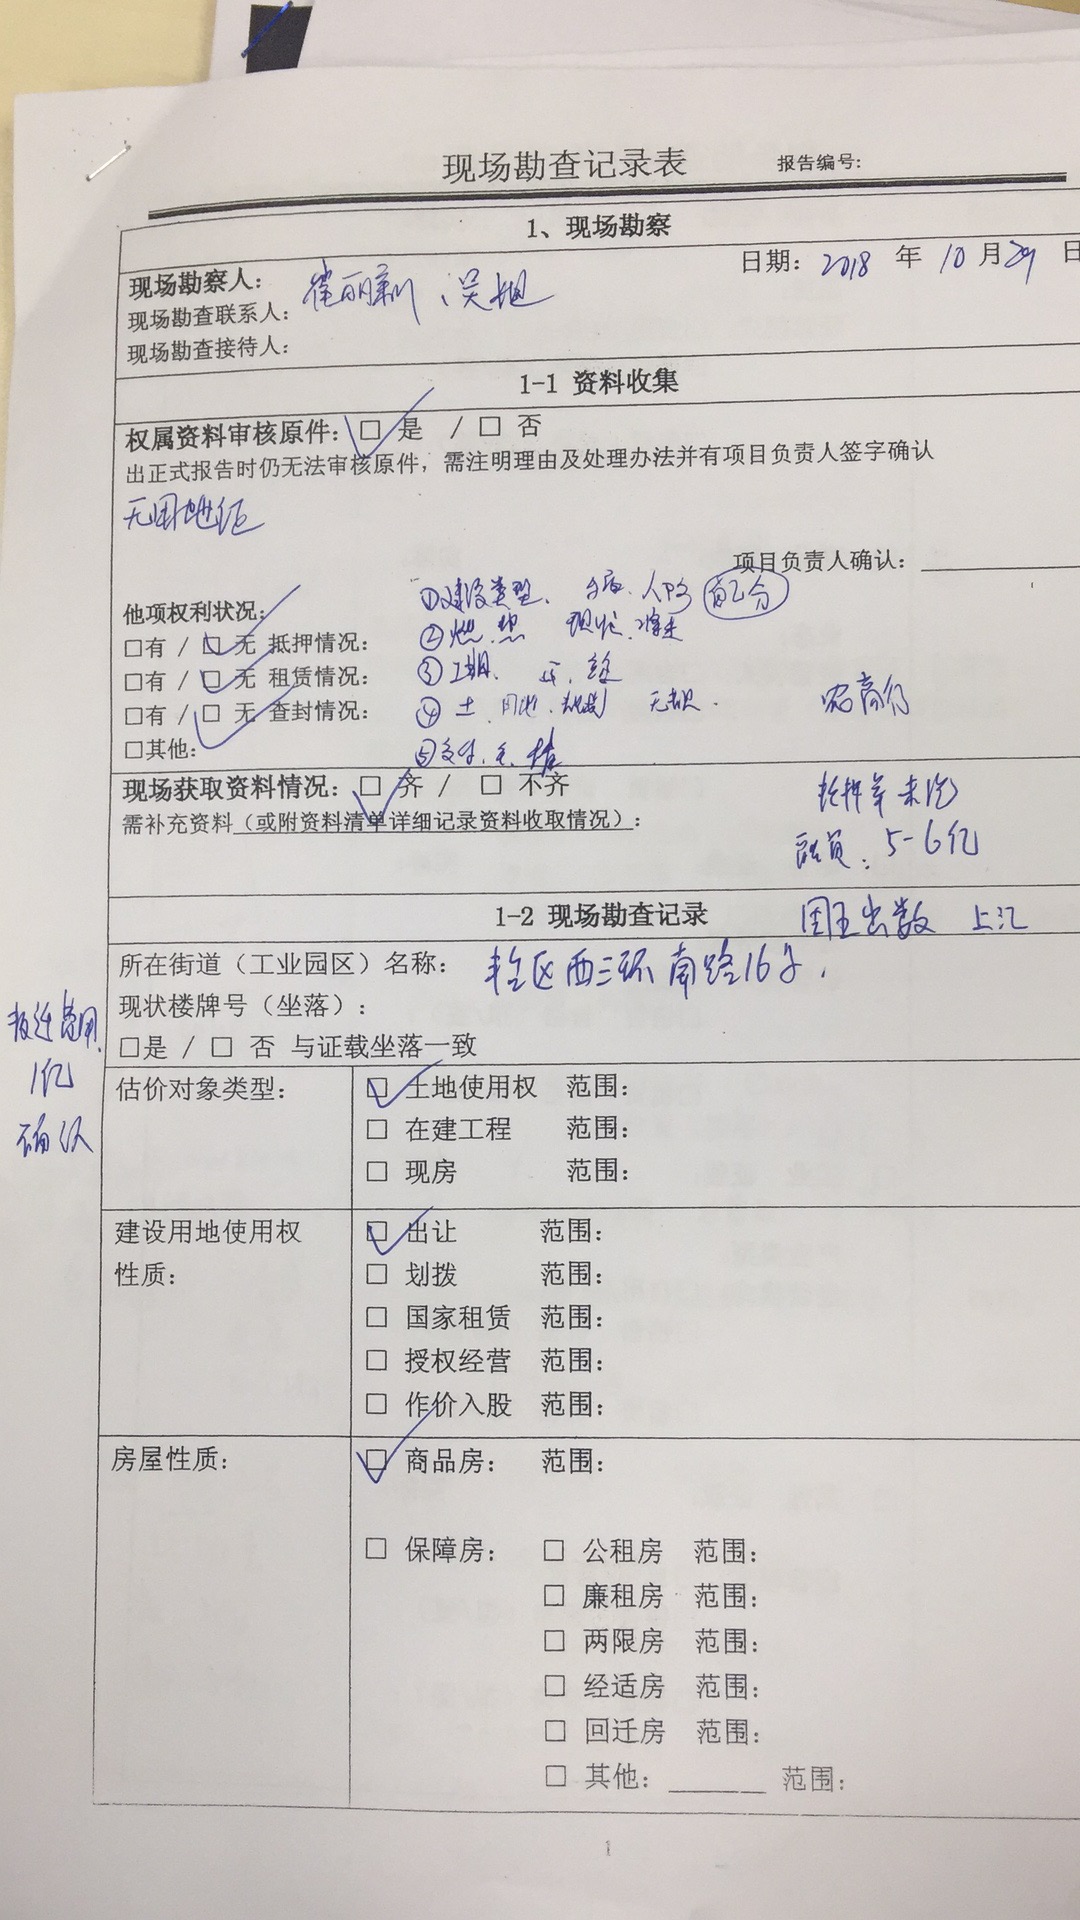 现场勘查记录表 报告编号:
1、现场勘察
现场勘察人: 日期: 2018 年 10 月 29 日
现场勘查联系人:
现场勘查接待人:
1-1 资料收集
权属资料审核原件: □ 是 / □ 否
出正式报告时仍无法审核原件，需注明理由及处理办法并有项目负责人签字确认
无用地证
项目负责人确认:
他项权利状况: ①建设类型、
□有 / □ 无 抵押情况: ②
□有 / □ 无 租赁情况: ③工期、
□有 / □ 无 查封情况: ④土、用地、规划 农商行
□其他: ⑤
现场获取资料情况: □ 齐 / □ 不齐
需补充资料(或附资料清单详细记录资料收取情况):
融资: 5-6亿
1-2 现场勘查记录 出数
所在街道（工业园区）名称: 丰台区西三环南路16号,
现状楼牌号（坐落）:
□是 / □ 否 与证载坐落一致
费用
1亿
确认
估价对象类型: □ 土地使用权 范围:
□ 在建工程 范围:
□ 现房 范围:
建设用地使用权 □ 出让 范围:
性质: □ 划拨 范围:
□ 国家租赁 范围:
□ 授权经营 范围:
□ 作价入股 范围:
房屋性质: □ 商品房: 范围:
□ 保障房: □ 公租房 范围:
□ 廉租房 范围:
□ 两限房 范围:
□ 经适房 范围:
□ 回迁房 范围:
□ 其他: 范围:
1